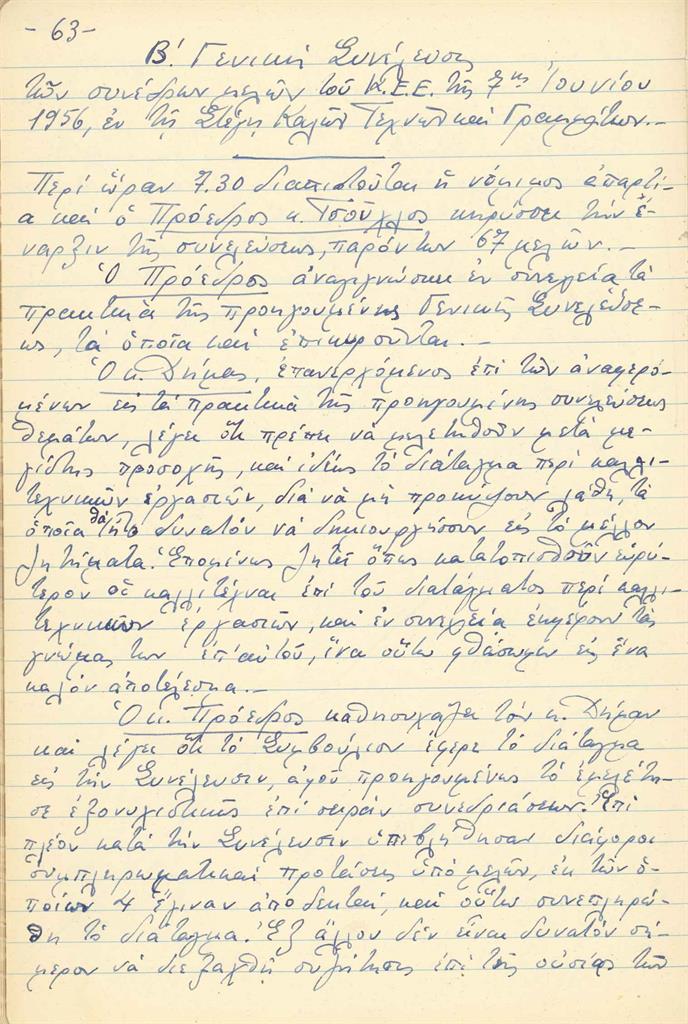 - 63 -
Β΄. Γενική Συνέλευσις
τῶν συνέδρων μελῶν τοῦ Κ.Ε.Ε. τῆς 7ης Ἰουνίου
1956, ἐν τῇ Στέγῃ Καλῶν Τεχνῶν καί Γραμμάτων.-
Περί ὥραν 7.30 διαπιστοῦται ἡ νόμιμος ἀπαρτί-
α καί ὁ Πρόεδρος κ. Τσοῦχλος κηρύσσει τήν ἔ-
ναρξιν τῆς συνελεύσεως, παρόντων 67 μελῶν.-
Ὁ Πρόεδρος ἀναγιγνώσκει ἐν συνεχείᾳ τά
πρακτικά τῆς προηγουμένης Γενικῆς Συνελεύσε-
ως, τά ὁποῖα καί ἐπικυροῦνται.-
Ὁ κ. Δήμας, ἐπανερχόμενος ἐπί τῶν ἀναφερο-
μένων εἰς τά πρακτικά τῆς προηγουμένης συνελεύσεως
θεμάτων, λέγει ὅτι πρέπει νά μελετηθοῦν μετά με-
γίστης προσοχῆς, καί ἰδίως τό διάταγμα περί καλλι-
τεχνικῶν ἐργασιῶν, διά νά μή προκύψουν λάθη, τά
ὁποῖα θά ἦτο δυνατόν νά δημιουργήσουν εἰς τό μέλλον
ζητήματα. Ἑπομένως ζητεῖ ὅπως κατατοπισθοῦν εὐρύ-
τερον οἱ καλλιτέχναι ἐπί τοῦ διατάγματος περί καλλι-
τεχνικῶν ἐργασιῶν, καί ἐν συνεχείᾳ ἐκφέρουν τάς
γνώμας των ἐπ' αὐτοῦ, ἵνα οὕτω φθάσωμεν εἰς ἕνα
καλόν ἀποτέλεσμα.-
Ὁ κ. Πρόεδρος καθησυχάζει τόν κ. Δήμαν
καί λέγει ὅτι τό Συμβούλιον ἔφερε τό διάταγμα
εἰς τήν Συνέλευσιν, ἀφοῦ προηγουμένως τό ἐμελέτη-
σε ἐξονυχιστικῶς ἐπί σειράν συνεδριάσεων. Ἐπί
πλέον κατά τήν Συνέλευσιν ὑπεβλήθησαν διάφοροι
συμπληρωματικαί προτάσεις ὑπό μελῶν, ἐκ τῶν ὁ-
ποίων 4 ἔγιναν ἀποδεκταί, καί οὕτω συνεπληρώ-
θη τό διάταγμα. Ἐξ ἄλλου δέν εἶναι δυνατόν σή-
μερον νά διεξαχθῇ συζήτησις ἐπί τῆς οὐσίας τῶν